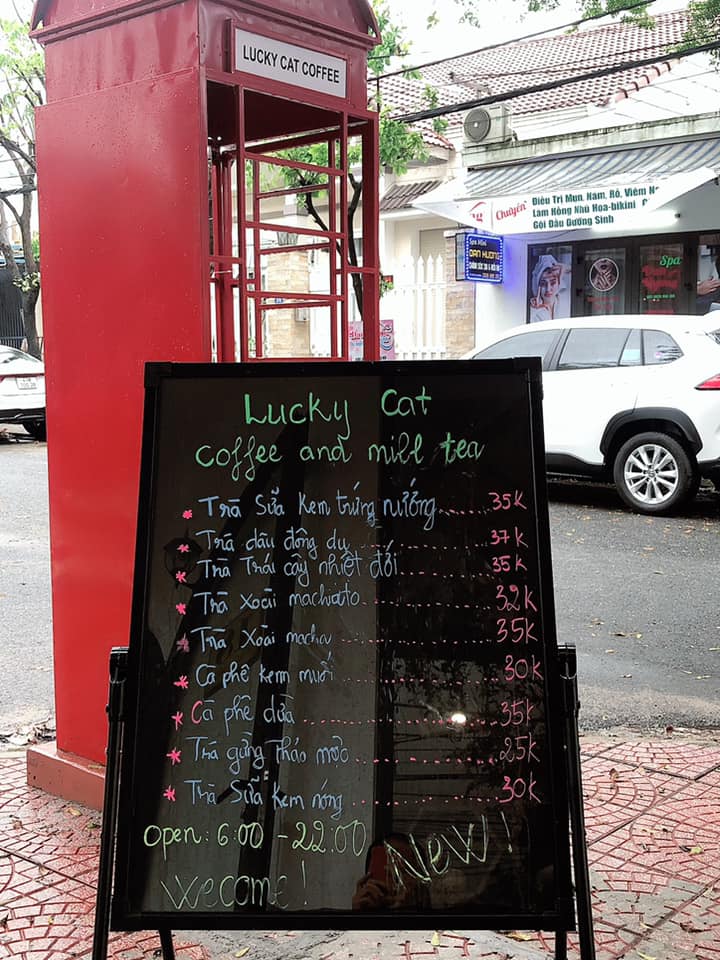 LUCKY CAT COFFEE
Chuyên
Điều Trị Mụn, Nám, Rỗ, Viêm
Làm Hồng Nhũ Hoa-bikini
Gội Đầu Dưỡng Sinh
Spa Mini
ĐAN HƯƠNG
Spa
Lucky Cat
coffee and mill tea
* Trà Sữa Kem trứng nướng...... 35k
* Trà dâu đông du ............ 37k
* Trà Trái cây nhiệt đới ............ 35k
* Trà xoài machiato ............ 32k
* Trà Xoài macha ............ 35k
* Cà phê kem muối ............ 30k
* Cà phê dừa ............ 35k
* Trà gừng thảo mộc ............ 25k
* Trà Sữa Kem nóng ............ 30k
Open: 6:00 - 22:00
Wecome!
New!